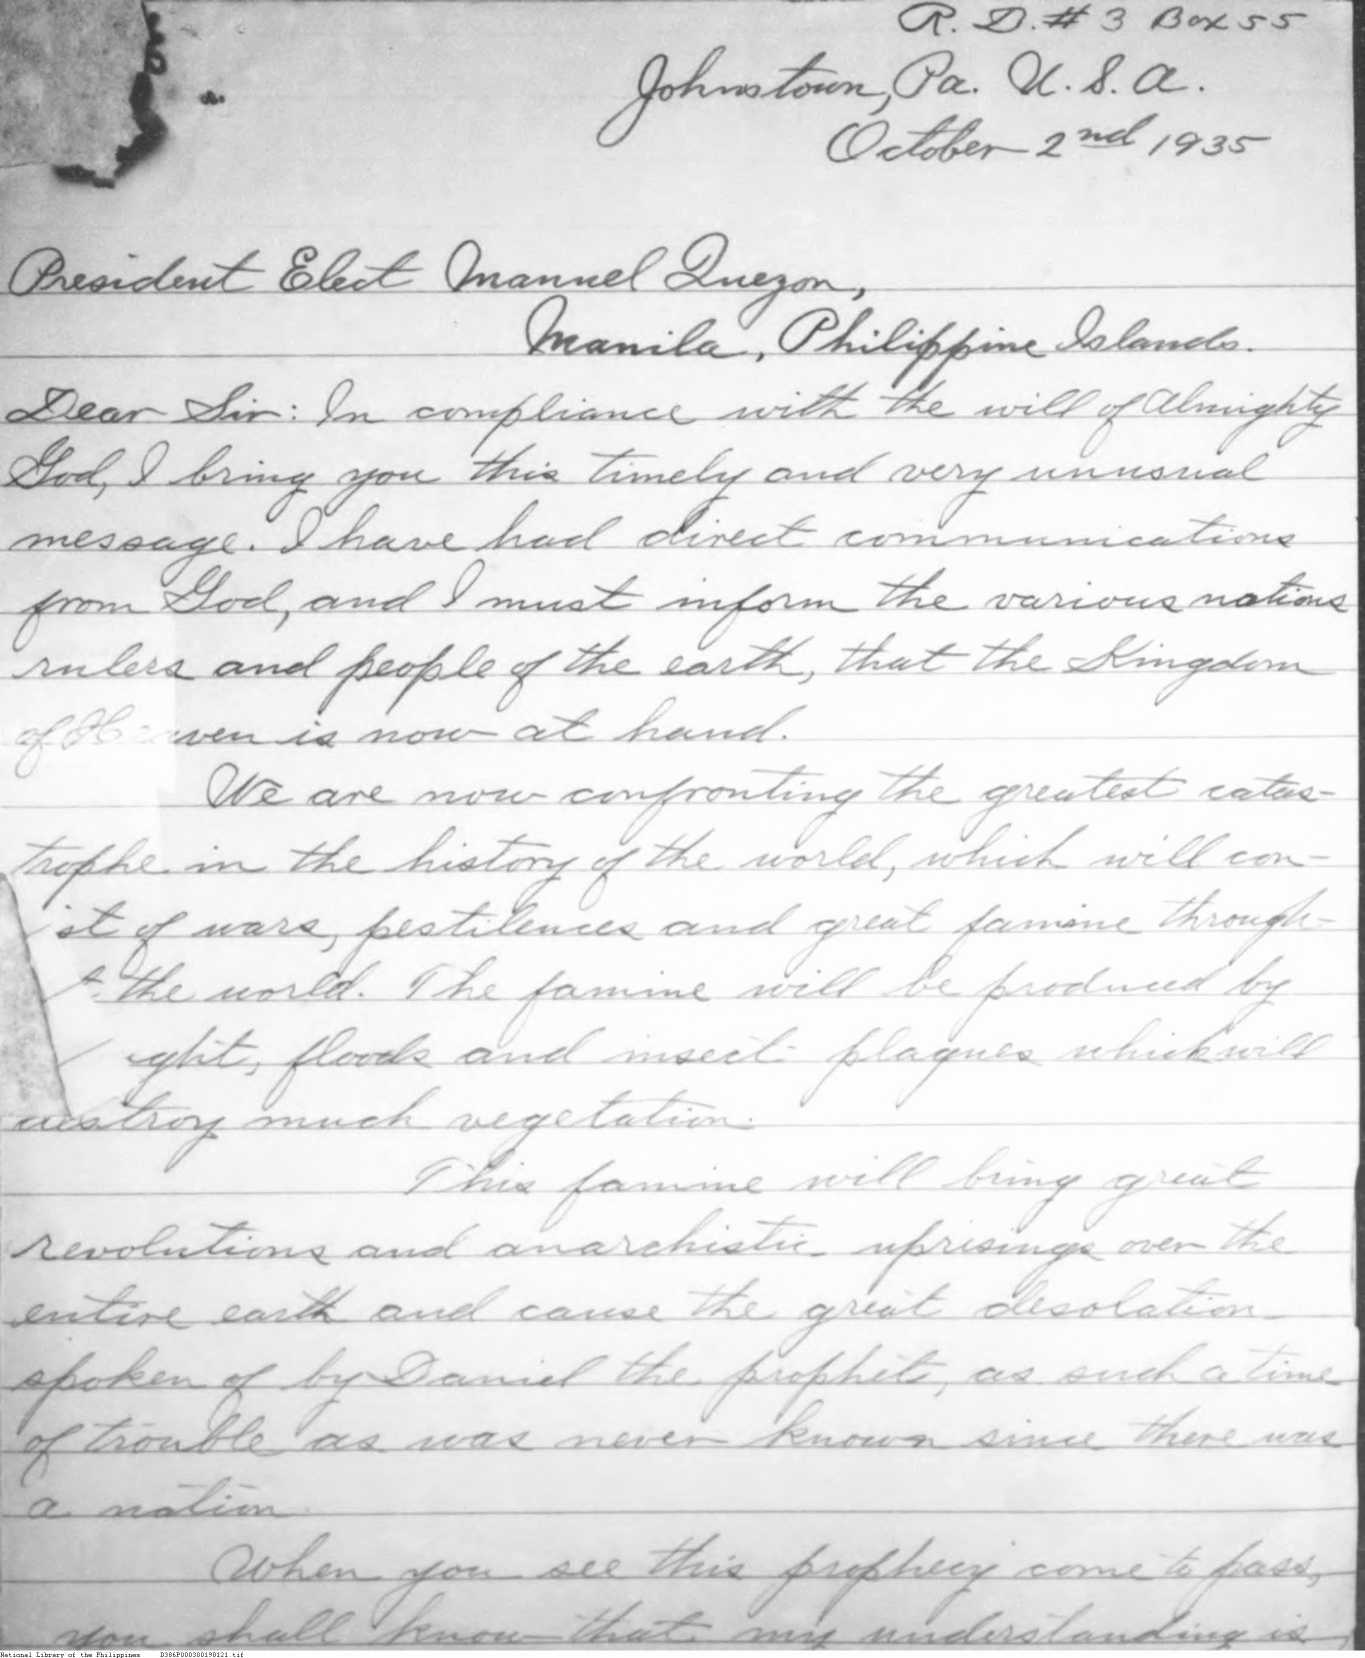 R. D. # 3 Box 55
Johnstown, Pa. U. S. A.
October 2nd 1935
President Elect Manuel Quezon,
Manila, Philippine Islands.
Dear Sir: In compliance with the will of Almighty
God, I bring you this timely and very unusual
message. I have had direct communications
from God, and I must inform the various nations
rulers and people of the earth, that the Kingdom
of Heaven is now at hand.
We are now confronting the greatest catas-
trophe in the history of the world, which will con-
ist of wars, pestilences and great famine through-
the world. The famine will be produced by
ght, floods and insect plagues which will
destroy much vegetation.
This famine will bring great
revolutions and anarchistic uprisings over the
entire earth and cause the great desolation
spoken of by Daniel the prophet, as such a time
of trouble as was never known since there was
a nation
When you see this prophecy come to pass,
you shall know that my understanding is,
National Library of the Philippines D386P000300198121.tif